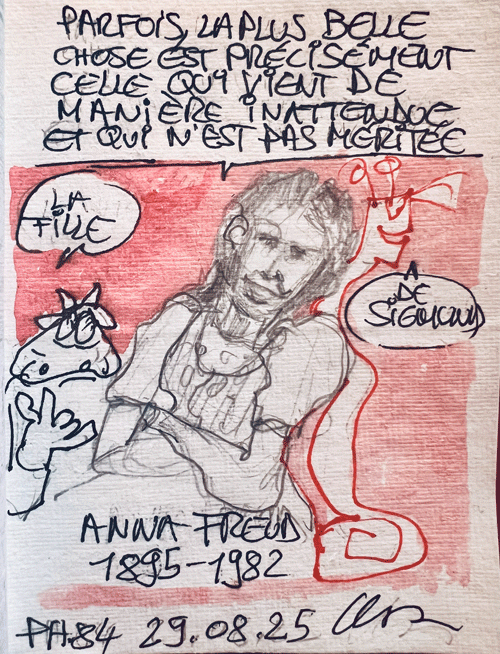 PARFOIS, LA PLUS BELLE
CHOSE EST PRÉCISÉMENT
CELLE QUI VIENT DE
MANIÈRE INATTENDUE
ET QUI N'EST PAS MÉRITÉE
LA
FILLE
A
DE
SIGMUND
ANNA FREUD
1895-1982
PA.84 29.08.25